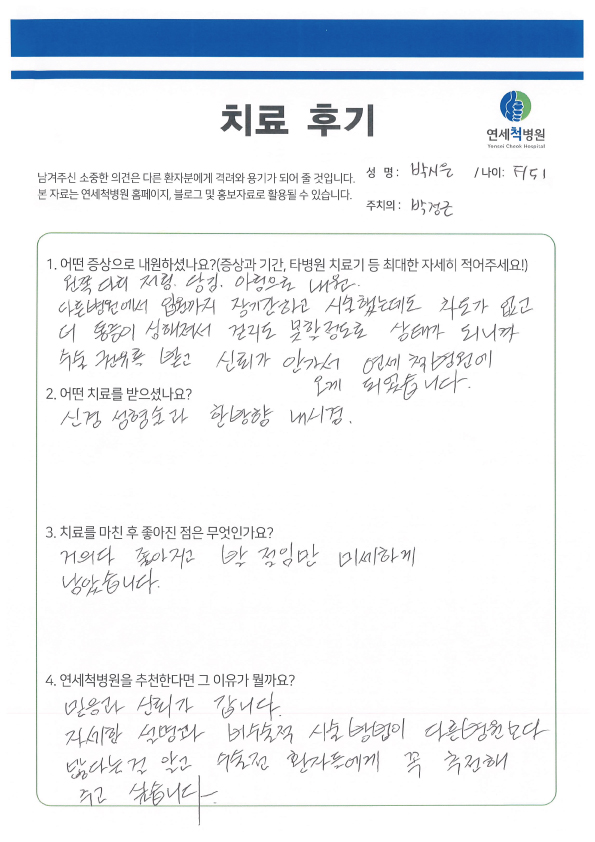 치료 후기
연세척병원
Yonsei Cheok Hospital
남겨주신 소중한 의견은 다른 환자분에게 격려와 용기가 되어 줄 것입니다.
본 자료는 연세척병원 홈페이지, 블로그 및 홍보자료로 활용될 수 있습니다.
성 명: 박시은 / 나이: F/51
주치의: 박경근
1. 어떤 증상으로 내원하셨나요?(증상과 기간, 타병원 치료기 등 최대한 자세히 적어주세요!)
왼쪽 다리 저림. 당김. 아림으로 내원.
다른병원에서 입원까지 장기간하고 시술했는데도 차도가 없고
더 통증이 심해져서 걷지도 못할정도로 상태가 되니까
수술 권유를 받고 신뢰가 안가서 연세 척병원에
오게 되었습니다.
2. 어떤 치료를 받으셨나요?
신경 성형술과 한방향 내시경.
3. 치료를 마친 후 좋아진 점은 무엇인가요?
거의다 좋아지고 발 절임만 미세하게
남았습니다.
4. 연세척병원을 추천한다면 그 이유가 뭘까요?
믿음과 신뢰가 갑니다.
자세한 설명과 비수술적 시술방법이 다른병원보다
많다는걸 알고 수술전 환자들에게 꼭 추천해
주고 싶습니다